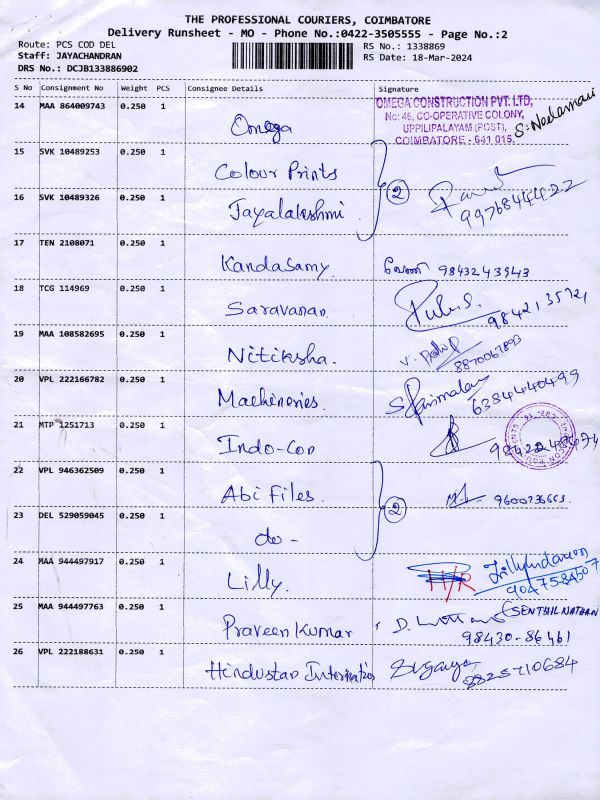 THE PROFESSIONAL COURIERS, COIMBATORE
Delivery Runsheet - MO - Phone No.:0422-3505555 - Page No.:2
Route: PCS COD DEL
RS No.: 1338869
Staff: JAYACHANDRAN
RS Date: 18-Mar-2024
DRS No.: DCJB133886902
S No Consignment No Weight PCS Consignee Details Signature
14 MAA 864009743 0.250 1 Omega
OMEGA CONSTRUCTION PVT. LTD,
No: 46, CO-OPERATIVE COLONY,
UPPILIPALAYAM (POST),
COIMBATORE - 641 015.
15 SVK 10489253 0.250 1 Colour Prints
16 SVK 10489326 0.250 1 Jayalakshmi 2 9976844422
17 TEN 2108071 0.250 1 Kandasamy 9843243943
18 TCG 114969 0.250 1 Saravanan
19 MAA 108582695 0.250 1 Nitiksha. 8870067893
20 VPL 222166782 0.250 1 Machineries. 6384440499
21 MTP 1251713 0.250 1 Indo-Con
22 VPL 946362509 0.250 1 Abi Files.
23 DEL 529059045 0.250 1 do - 2
24 MAA 944497917 0.250 1 Lilly. 9047584507
25 MAA 944497763 0.250 1 Praveen Kumar (SENTHIL NATHAN
98430-86461
26 VPL 222188631 0.250 1 Hindustan